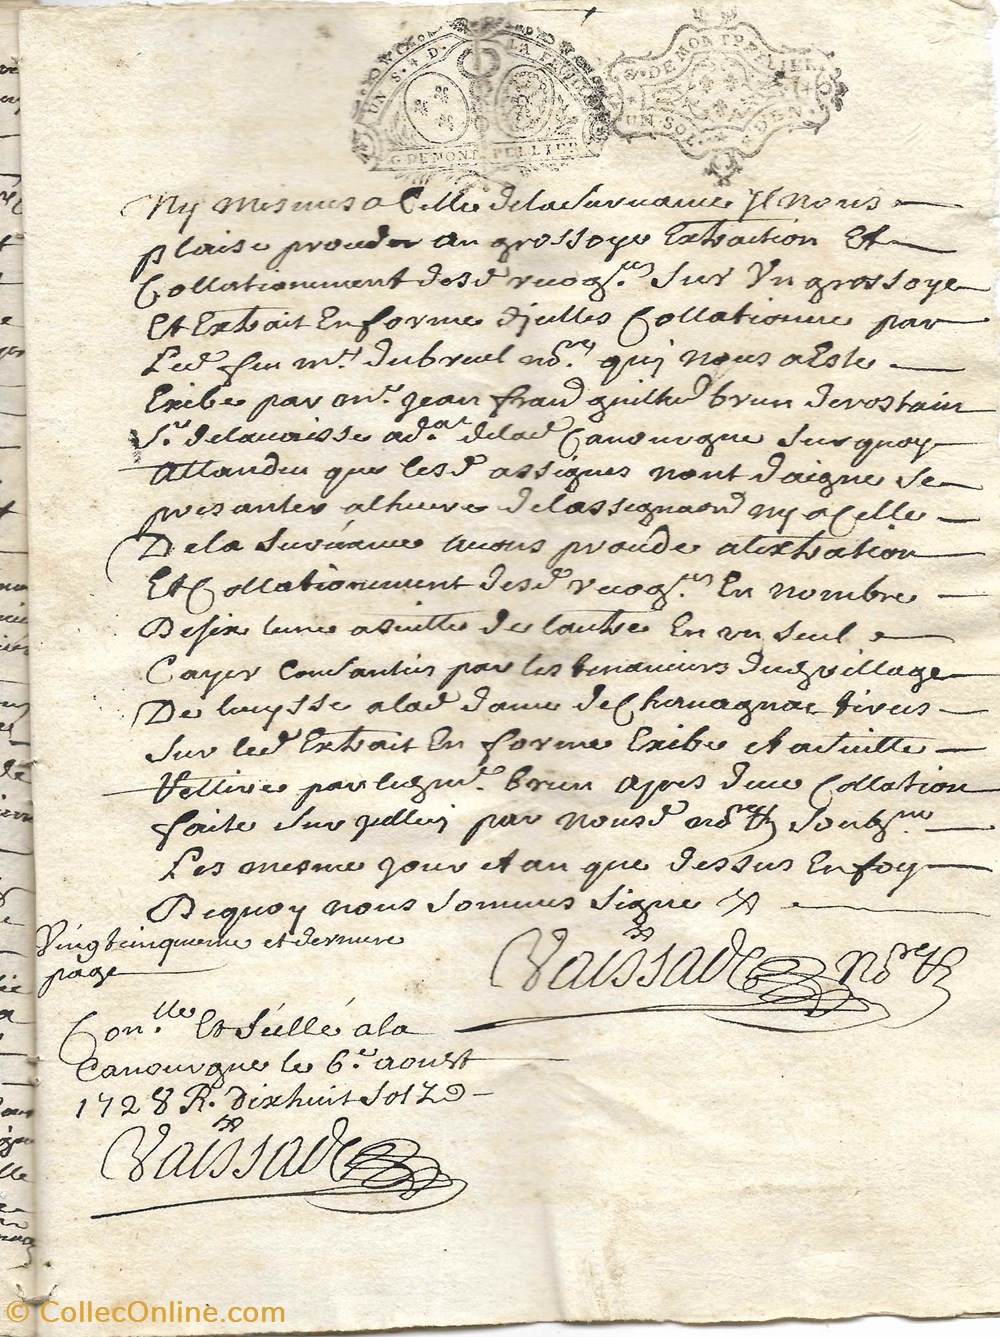 UN S. 4 D. LA FEUILLE
G. DE MONTPELLIER
G. DE MONTPELLIER
UN SOL DEN
Ny mesmes a Celle de la Survance Il nous
plaise proceder an grossoye Extraction Et
Collationnement desd recog.ces sur Un grossoye
Et Extrait En forme djcelles Collationne par
Led feu m.e dubruel no.re quj nous a Este
Exibe par m.e jean fran guilhe brun de rostain
S.r delavaisse ad.at de lad Canourgue Surquoy
attandeu que lesd assignes nont daigne se
presanter a lheure de lassignaon ny a Celle
De la Survance avons procede a lextraction
Et Collationnement desd recog.ces En nombre
De six lune a suitte de lautre En un seul
Cayer consanties par les tenanciers dud village
De a lad dame de Chanagnac tires
sur led Extrait En forme Exibe et a suitte
Retiree par led m.e brun apres due Collation
faite sur jcelluy par nousd no.re soubg.ne
Les mesme jour et an que dessus En foy
De quoy nous sommes signe
Vingt cinqueme et derniere
page
Vaissade no.re
Con.lle Et séellé a la
Canourgue le 6.e aoust
1728 R. Dixhuit sols
Vaissade
© CollecOnline.com